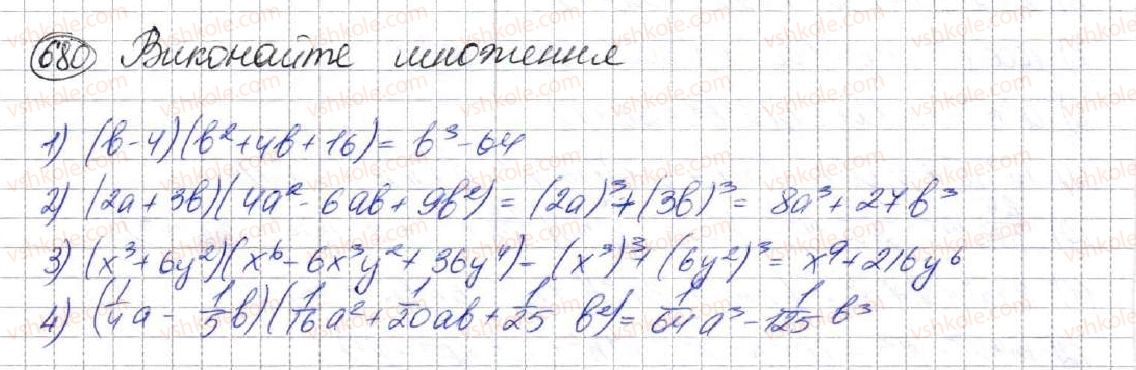 680 Виконайте множення
1) (b-4)(b²+4b+16)= b³-64
2) (2a+3b)(4a²-6ab+9b²)=(2a)³+(3b)³= 8a³+27b³
3) (x³+6y²)(x⁶-6x³y²+36y⁴)-(x³)³+(6y²)³= x⁹+216y⁶
4) (1/4a - 1/5b)(1/16a²+1/20ab+1/25 b²)= 1/64a³-1/125b³